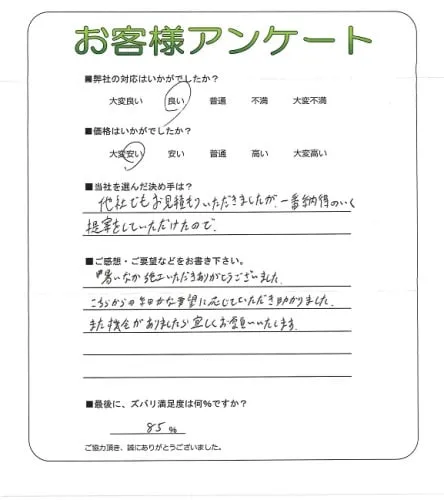 お客様アンケート
■弊社の対応はいかがでしたか?
大変良い 良い 普通 不満 大変不満
■価格はいかがでしたか?
大変安い 安い 普通 高い 大変高い
■当社を選んだ決め手は?
他社でもお見積もりいただきましたが、一番納得のいく
提案をしていただけたので。
■ご感想・ご要望などをお書き下さい。
暑いなか施工いただきありがとうございました。
こちらからの細かな要望に応じていただき助かりました。
また機会がありましたら宜しくお願いいたします。
■最後に、ズバリ満足度は何%ですか?
85%
ご協力頂き、誠にありがとうございました。